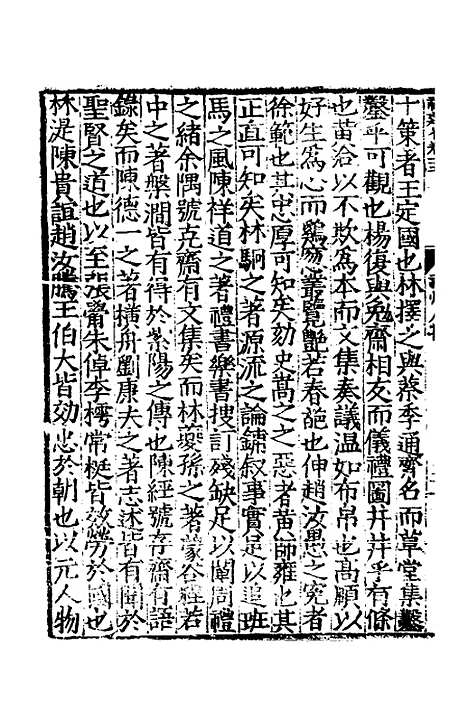 十策者王定國也林擇之與蔡季通齊名而草堂集鑿
鑿乎可觀也楊復與勉齋相友而儀禮圖井井乎有條
也苗洽以不欺為本而文集奏議温如布帛也髙頤以
好生為心而鷄窓叢覽艷若春葩也伸趙汝愚之寃者
徐範也其忠厚可知矣劾史嵩之之惡者黄師雍也其
正直可知矣林駉之著源流之論鋪叙事實足以追班
馬之風陳祥道之著禮書樂書搜訂殘缺足以闡周禮
之緒余隅號克齋有文集矣而林夔孫之著蒙谷程若
中之著槃澗皆有得於紫陽之傳也陳經號存齋有語
錄矣而陳德一之著橫舟劉康夫之著志述皆有聞於
聖賢之道也以至張肩朱倬李樗常挺皆效勞於國也
林湜陳貴誼趙汝騰王伯大皆効忠於朝也以元人物